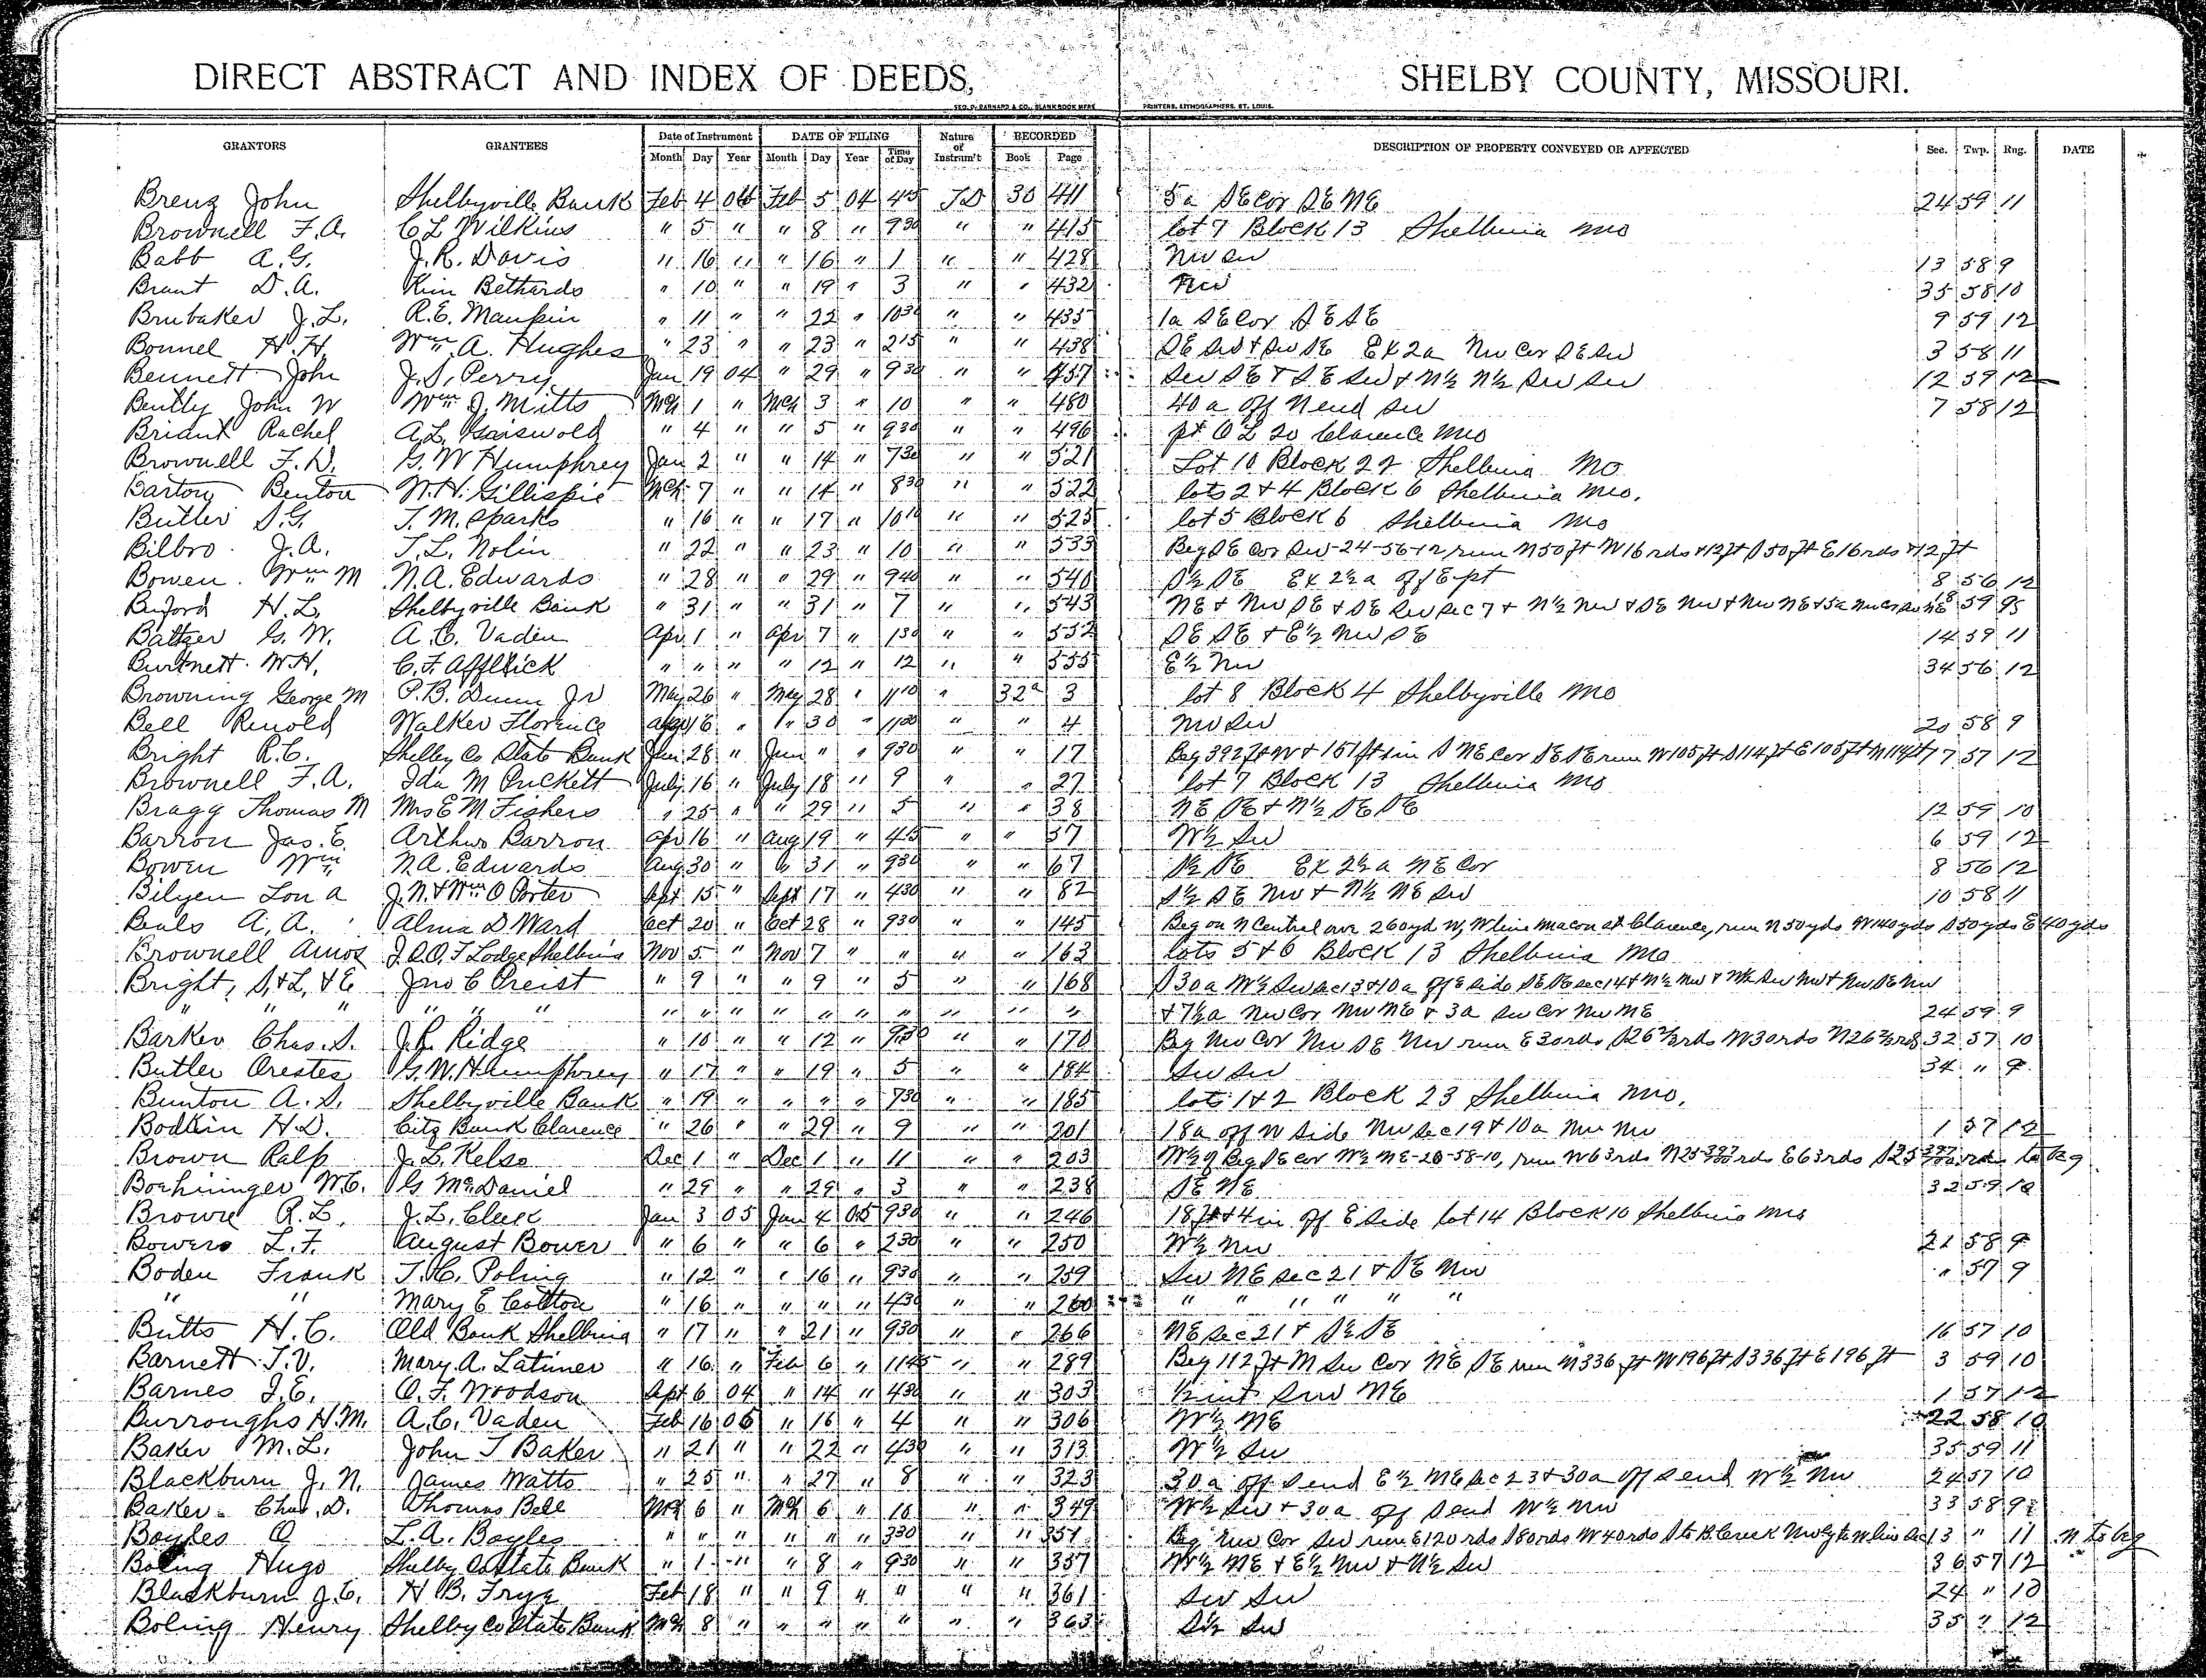 DIRECT ABSTRACT AND INDEX OF DEEDS, SHELBY COUNTY, MISSOURI.
GEO. D. BARNARD & CO., BLANK BOOK MFRS PRINTERS, LITHOGRAPHERS, ST. LOUIS.
GRANTORS GRANTEES Date of Instrument DATE OF FILING Nature of Instrum't RECORDED DESCRIPTION OF PROPERTY CONVEYED OR AFFECTED Sec. Twp. Rng. DATE
Month Day Year Month Day Year Time of Day Book Page
Breng John Shelbyville Bank Feb 4 04 Feb 5 04 445 TD 30 411 5a SE Cor SE NE 24 59 11
Brownell F.A. C L Wilkins " 5 " " 8 " 930 " " 415 lot 7 Block 13 Shelbina Mo
Babb A.G. J.R. Davis " 16 " " 16 " 1 " " 428 NW SW 13 58 9
Brant D.A. Kim Bethards " 10 " " 19 " 3 " " 432 NW 35 58 10
Brubaker J.L. R.E. Maupin " 11 " " 22 " 1030 " " 435 1a SE Cor SE SE 9 59 12
Bonnel H.H. Wm A. Hughes " 23 " " 23 " 215 " " 438 SE SW & SW SE Ex 2a NW Cor SE SW 3 58 11
Bennett John J.S. Perry Jan 19 04 " 29 " 930 " " 457 SW SE & SE SW & N½ N½ SW SW 12 59 12
Bently John W Wm J. Mitts Mch 1 " Mch 3 " 10 " " 480 40a off N end SW 7 58 12
Briant Rachel A.L. Griswold " 4 " " 5 " 930 " " 496 pt O L 20 Clarence Mo
Brownell F.D. G.W Humphrey Jan 2 " " 14 " 730 " " 521 Lot 10 Block 22 Shelbina Mo
Barton Benton N.H. Gillispie Mch 7 " " 14 " 830 " " 522 lots 2 & 4 Block 6 Shelbina Mo.
Butler S.G. T.M. Sparks " 16 " " 17 " 1010 " " 525 lot 5 Block 6 Shelbina Mo
Bilbro J.A. T.L. Nolin " 22 " " 23 " 10 " " 533 Beg SE Cor SW-24-56-12 run N50ft W16rds & 12ft S50ft E16rds & 12ft
Bowen Wm M N.A. Edwards " 28 " " 29 " 940 " " 540 S½ SE Ex 2½a off E pt 8 56 12
Buford H.L. Shelbyville Bank " 31 " " 31 " 7 " " 543 NE & NW SE & SE SW Sec 7 & N½ NW & SE NW & NW NE & 5a NW Cor SW NE 18 59 9
Baltzer G.W. A.C. Vaden Apr 1 " Apr 7 " 130 " " 552 SE SE & E½ NW SE 14 59 11
Burtnett W.H. C.F. Afflick " " " " 12 " 12 " " 555 E½ NW 34 56 12
Browning George M P.B. Dunn Jr May 26 " May 28 " 1110 " 32a 3 lot 8 Block 4 Shelbyville Mo
Bell Renold Walker Florence Apr 16 " " 30 " 1130 " " 4 NW SW 20 58 9
Bright R.C. Shelby Co State Bank Jun 28 " Jun " " 930 " " 17 Beg 392ft W & 151ft S NE Cor SE SE run W105ft S114ft E105ft N114ft 7 57 12
Brownell F.A. Ida M Puckett July 16 " July 18 " 9 " " 27 lot 7 Block 13 Shelbina Mo
Bragg Thomas M Mrs E M Fishers " 25 " " 29 " 5 " " 38 NE SE & N½ SE SE 12 59 10
Barron Jas. E. Arthur Barron Apr 16 " Aug 19 " 445 " " 57 W½ SW 6 59 12
Bowen Wm N.A. Edwards Aug 30 " " 31 " 930 " " 67 S½ SE Ex 2½a NE Cor 8 56 12
Bilyeu Lon A J.N. & Wm O Porter Sept 15 " Sept 17 " 430 " " 82 S½ SE NW & N½ NE SW 10 58 11
Beals A.A. Alma D Ward Oct 20 " Oct 28 " 930 " " 145 Beg on N Central ave 260yd W, W line Macon st Clarence, run N50yds W40yds S50yds E40yds
Brownell Amos I.O.O.F Lodge Shelbina Nov 5 " Nov 7 " " " " 163 lots 5 & 6 Block 13 Shelbina Mo
Bright, S. & L. & E Jno C Preist " 9 " " 9 " 5 " " 168 S30a W½ SW Sec 13 & 10a off E side SE SE Sec 14 & N½ NW & N½ SW NW & NW SE NW
" " " " " " " " " " " " " " " " & 7½a NW Cor NW NE & 3a SW Cor NW NE 24 59 9
Barker Chas. S. J.R. Ridge " 10 " " 12 " 930 " " 170 Beg NW Cor NW SE NW run E30rds S26⅔rds W30rds N26⅔rds 32 57 10
Butler Orestes G.W. Humphrey " 17 " " 19 " 5 " " 184 SW SW 34 " 9
Bunton A.S. Shelbyville Bank " 19 " " " " 730 " " 185 lots 1 & 2 Block 23 Shelbina Mo.
Bodkin H.D. Citz Bank Clarence " 26 " " 29 " 9 " " 201 18a off W side NW Sec 19 & 10a NW NW 1 57 12
Brown Ralp J.L. Kelso Dec 1 " Dec 1 " 11 " " 203 W½ of Beg SE Cor W½ NE-20-58-10, run W63rds rds E63rds rds to beg
Boehringer W.C. G McDaniel " 29 " " 29 " 3 " " 238 SE NE 32 59 10
Browne R.L. J.L. Cleek Jan 3 05 Jan 4 05 930 " " 246 18ft & 4in off E side lot 14 Block 10 Shelbina Mo
Bowers L.F. August Bower " 6 " " 6 " 230 " " 250 W½ NW 21 58 9
Boden Frank T.C. Poling " 12 " " 16 " 930 " " 259 SW NE Sec 21 & SE NW " 57 9
" " Mary E Cotton " 16 " " " " 430 " " 260 " " " " " "
Butts H.C. Old Bank Shelbina " 17 " " 21 " 930 " " 266 NE Sec 21 & SE SE 16 57 10
Barnett T.V. Mary A. Latimer " 16 " Feb 6 " 1145 " " 289 Beg 112ft N SW Cor NE SE run N336ft W196ft S336ft E196ft 3 59 10
Barnes J.E. O.F. Woodson Sept 6 04 " 14 " 430 " " 303 ½ int SW NE 1 57 12
Burroughs H.M. A.C. Vaden Feb 16 05 " 16 " 4 " " 306 W½ NE 22 58 10
Baker M.L. John T Baker " 21 " " 22 " 430 " " 313 W½ SW 35 59 11
Blackburn J.N. James Watts " 25 " " 27 " 8 " " 323 30a off S end E½ NE Sec 23 & 30a off S end W½ NW 24 57 10
Baker Chas. D. Thomas Bell Mch 6 " Mch 6 " 10 " " 349 W½ SW & 30a off S end W½ NW 33 58 9
Boyles O L.A. Boyles " " " " " " 330 " " 351 Beg NW Cor SW run E120rds S80rds W40rds S to B Creek NWly to W line Sec 13 " 11 N to beg
Boling Hugo Shelby Co State Bank " 1 " " 8 " 930 " " 357 W½ NE & E½ NW & N½ SW 36 57 12
Blackburn J.C. H B. Frye Feb 18 " " 9 " " " " 361 SW SW 24 " 10
Boling Henry Shelby Co State Bank Mch 8 " " " " " " " 363 S½ SW 35 " 12